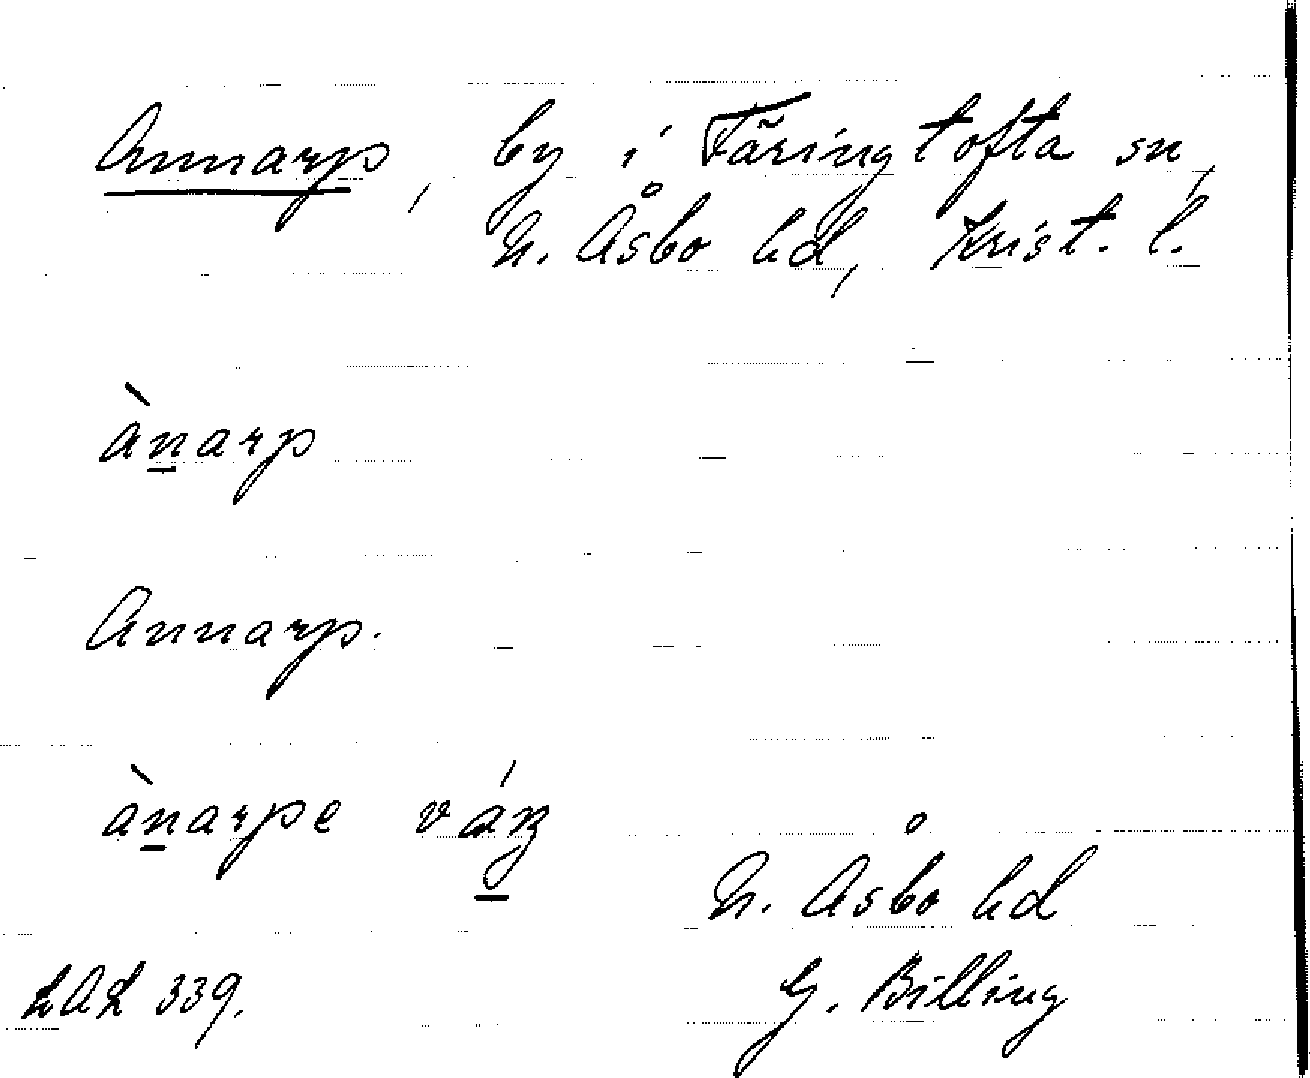 Annarp, by i Färingtofta sn,
N. Åsbo hd, Krist. l.
ànarp
Annarp.
ànarpe
N. Åsbo hd
LAL 339.
G. Billing